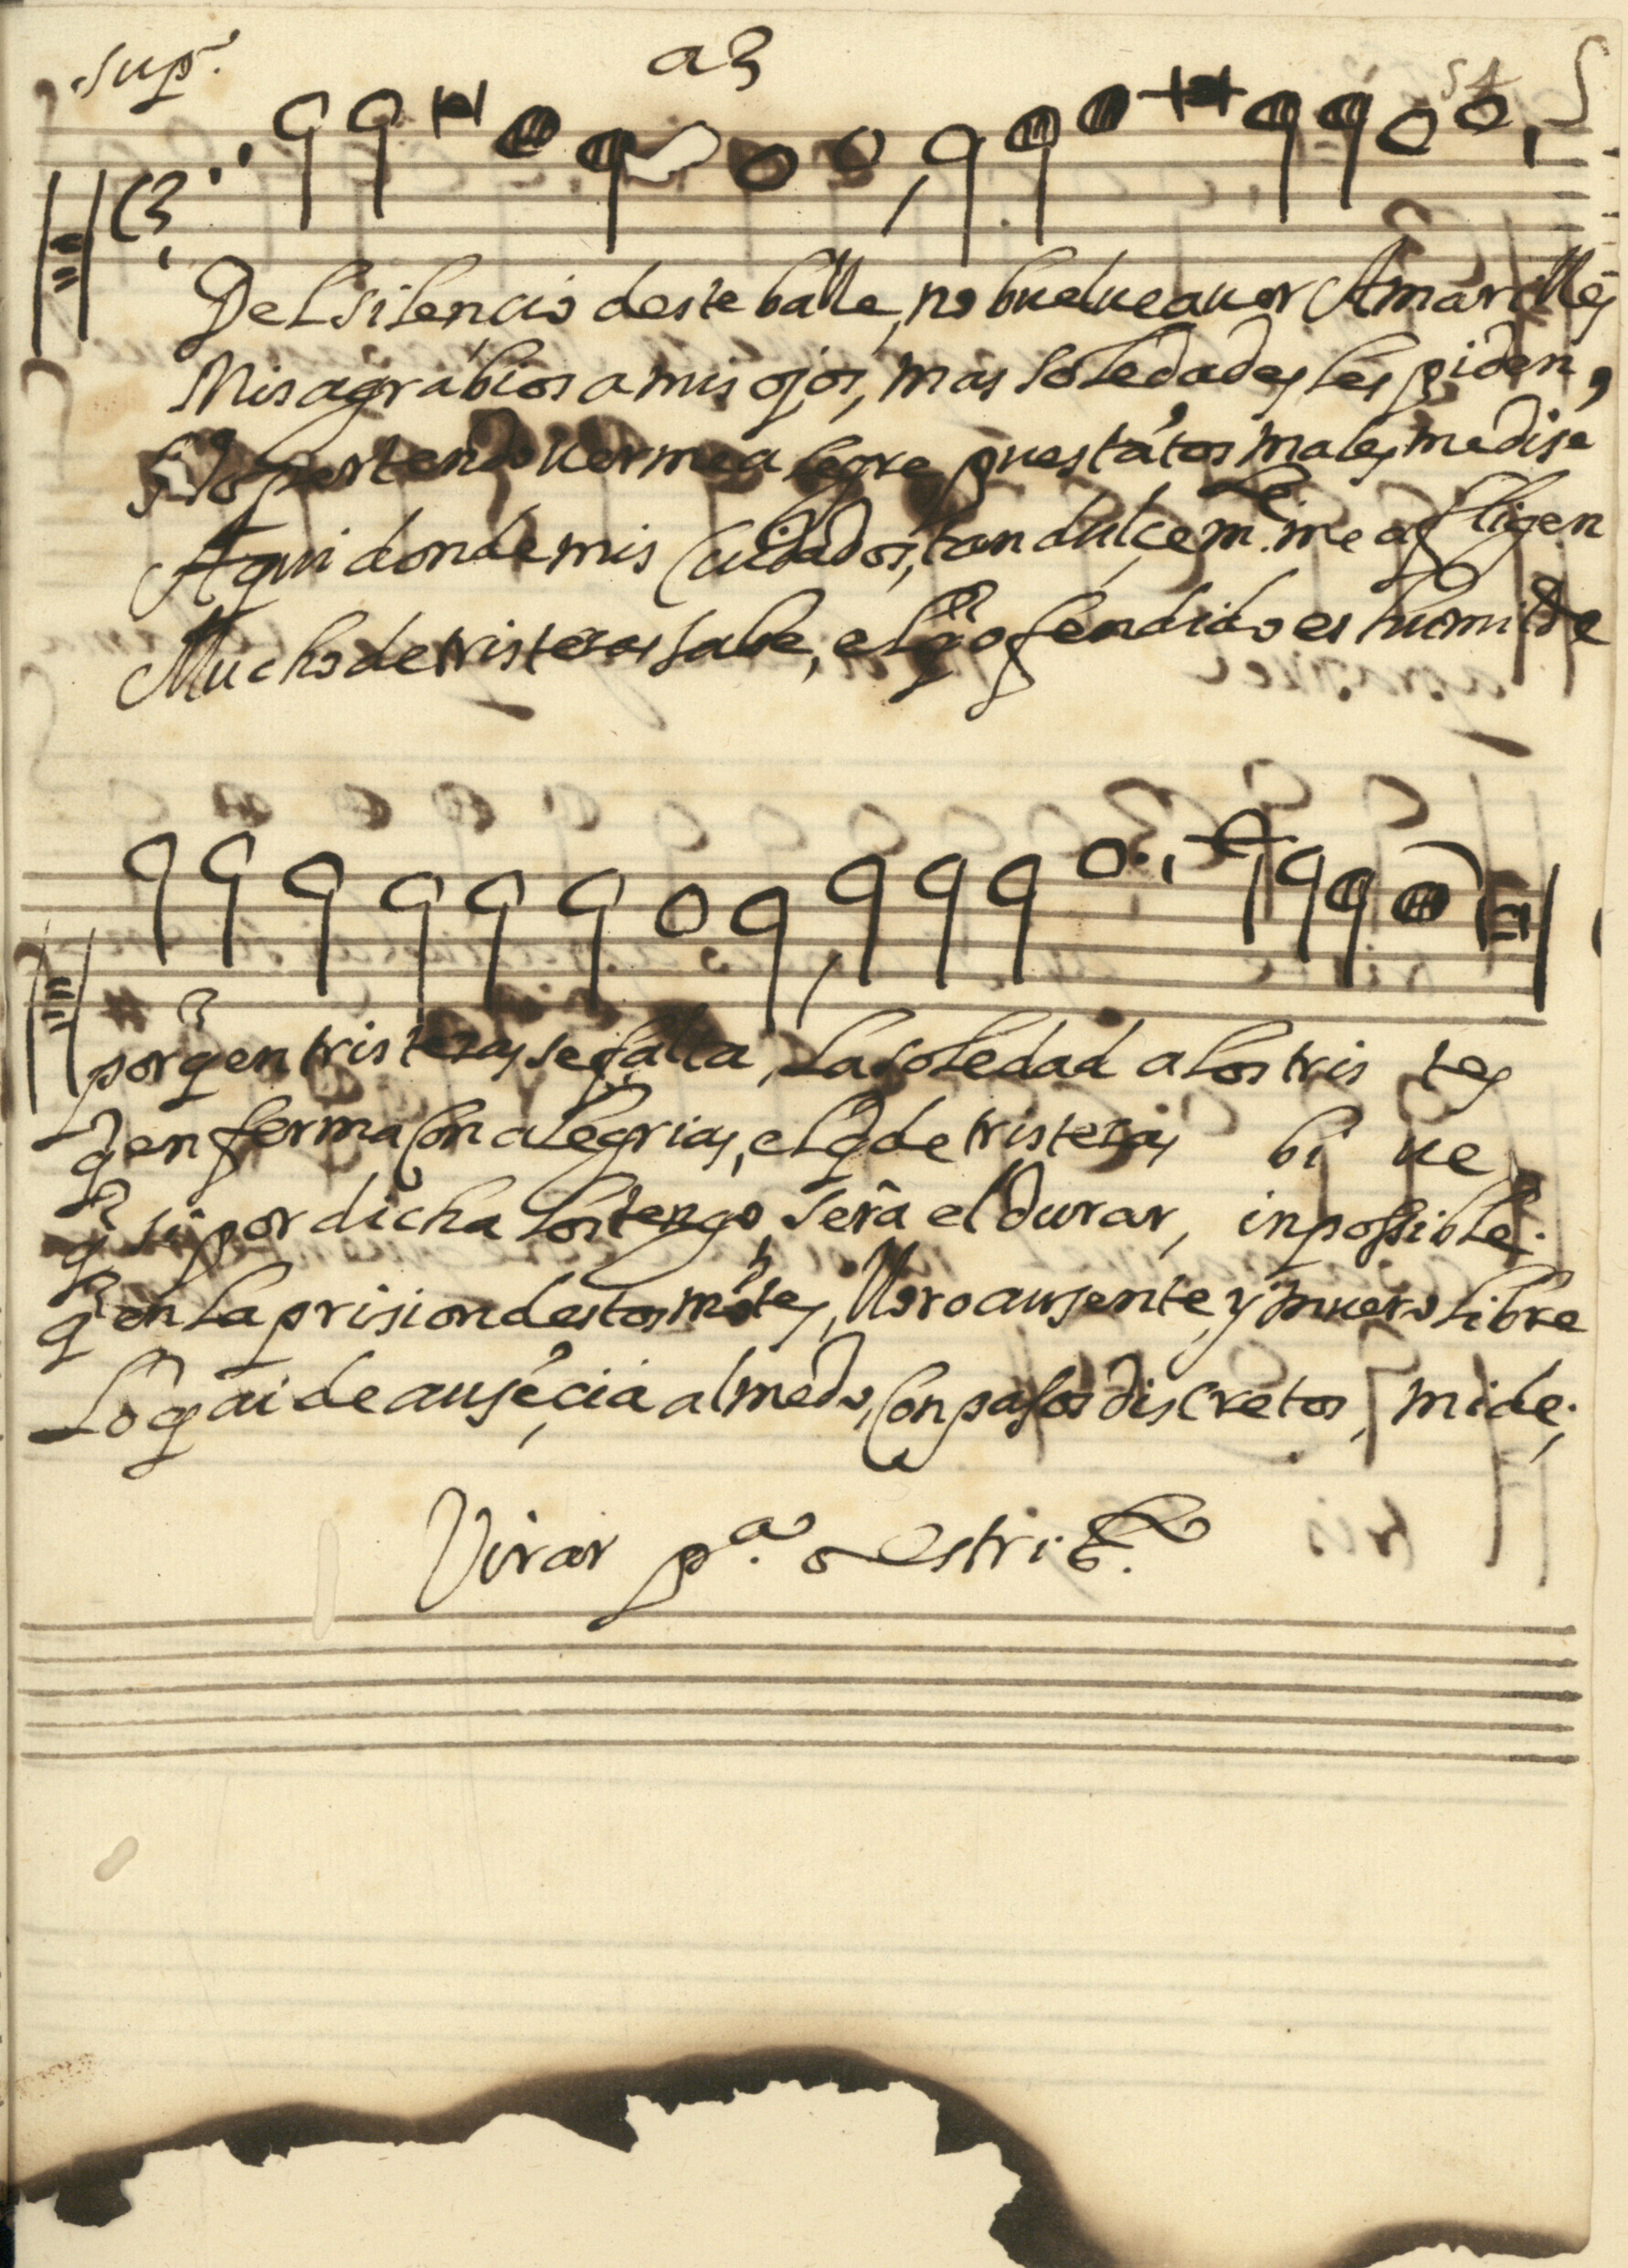 sup.^e a3
Del silencio deste balle, no buelue a uer Amarilles
Mis agrabios a mis ojos, mas soledades les piden,
No pertendo uerme alegre, pues tãtos males me dise
Aqui donde mis Cuidados, tan dulcem.^te me afligen
Mucho de tristezas sabe, el q̃ ofendido es humilde
porq̃ en tristezas se halla, La soledad a los tris tes
q̃ enferma Con alegrias, el q̃ de tristezas bi ue
q̃ si por dicha los tengo, serâ el durar, inpossible.
q̃ en la prision destos mõtes, lloro ausente, y muero libre
Lo q̃ ai de ausẽcia al medo, Con pasos discretos, mide;
Virar p.^a o Estrib.^o